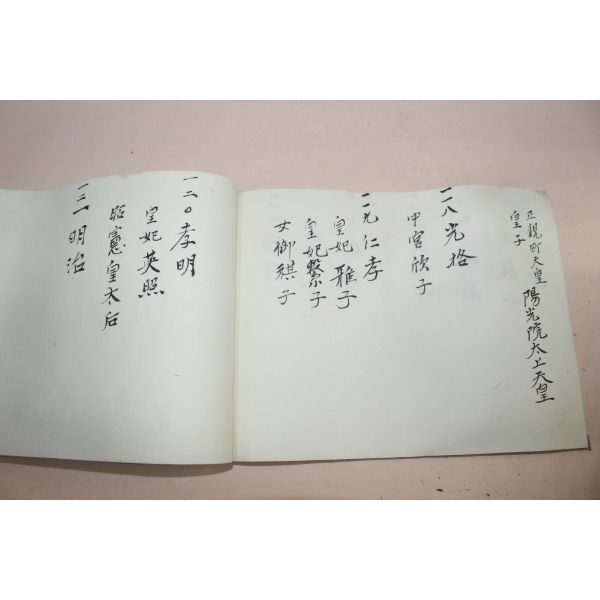 正親町天皇 陽光院太上天皇
皇子
一一八 光格
中宮欣子
一一九 仁孝
皇妃 雅子
皇妃繋子
女御祺子
一二〇 孝明
皇妃英照
昭憲皇太后
一二一 明治